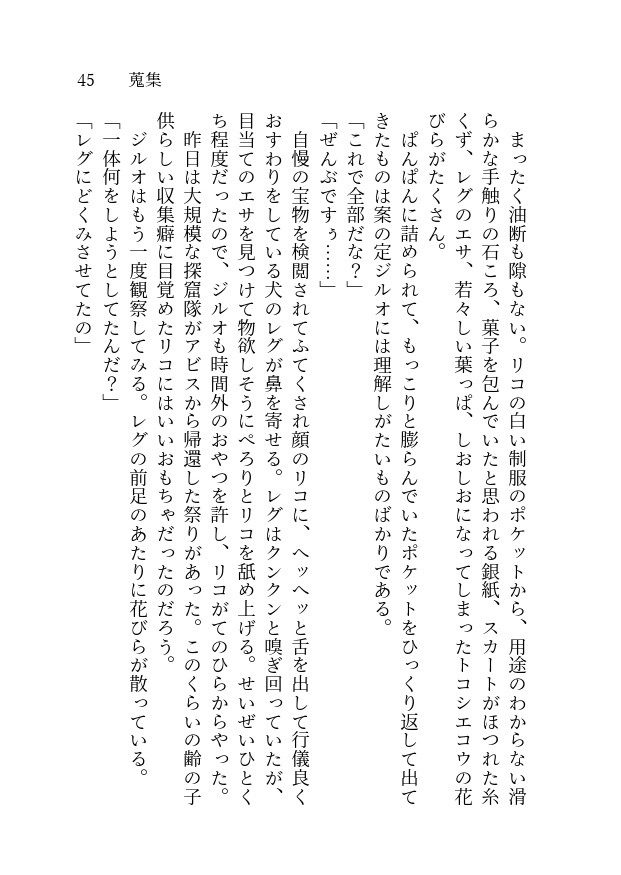 45 蒐集
まったく油断も隙もない。リコの白い制服のポケットから、用途のわからない滑
らかな手触りの石ころ、菓子を包んでいたと思われる銀紙、スカートがほつれた糸
くず、レグのエサ、若々しい葉っぱ、しおしおになってしまったトコシエコウの花
びらがたくさん。
ぱんぱんに詰められて、もっこりと膨らんでいたポケットをひっくり返して出て
きたものは案の定ジルオには理解しがたいものばかりである。
「これで全部だな？」
「ぜんぶですぅ……」
自慢の宝物を検閲されてふてくされ顔のリコに、ヘッヘッと舌を出して行儀良く
おすわりをしている犬のレグが鼻を寄せる。レグはクンクンと嗅ぎ回っていたが、
目当てのエサを見つけて物欲しそうにぺろりとリコを舐め上げる。せいぜいひとく
ち程度だったので、ジルオも時間外のおやつを許し、リコがてのひらからやった。
昨日は大規模な探窟隊がアビスから帰還した祭りがあった。このくらいの齢の子
供らしい収集癖に目覚めたリコにはいいおもちゃだったのだろう。
ジルオはもう一度観察してみる。レグの前足のあたりに花びらが散っている。
「一体何をしようとしてたんだ？」
「レグにどくみさせてたの」